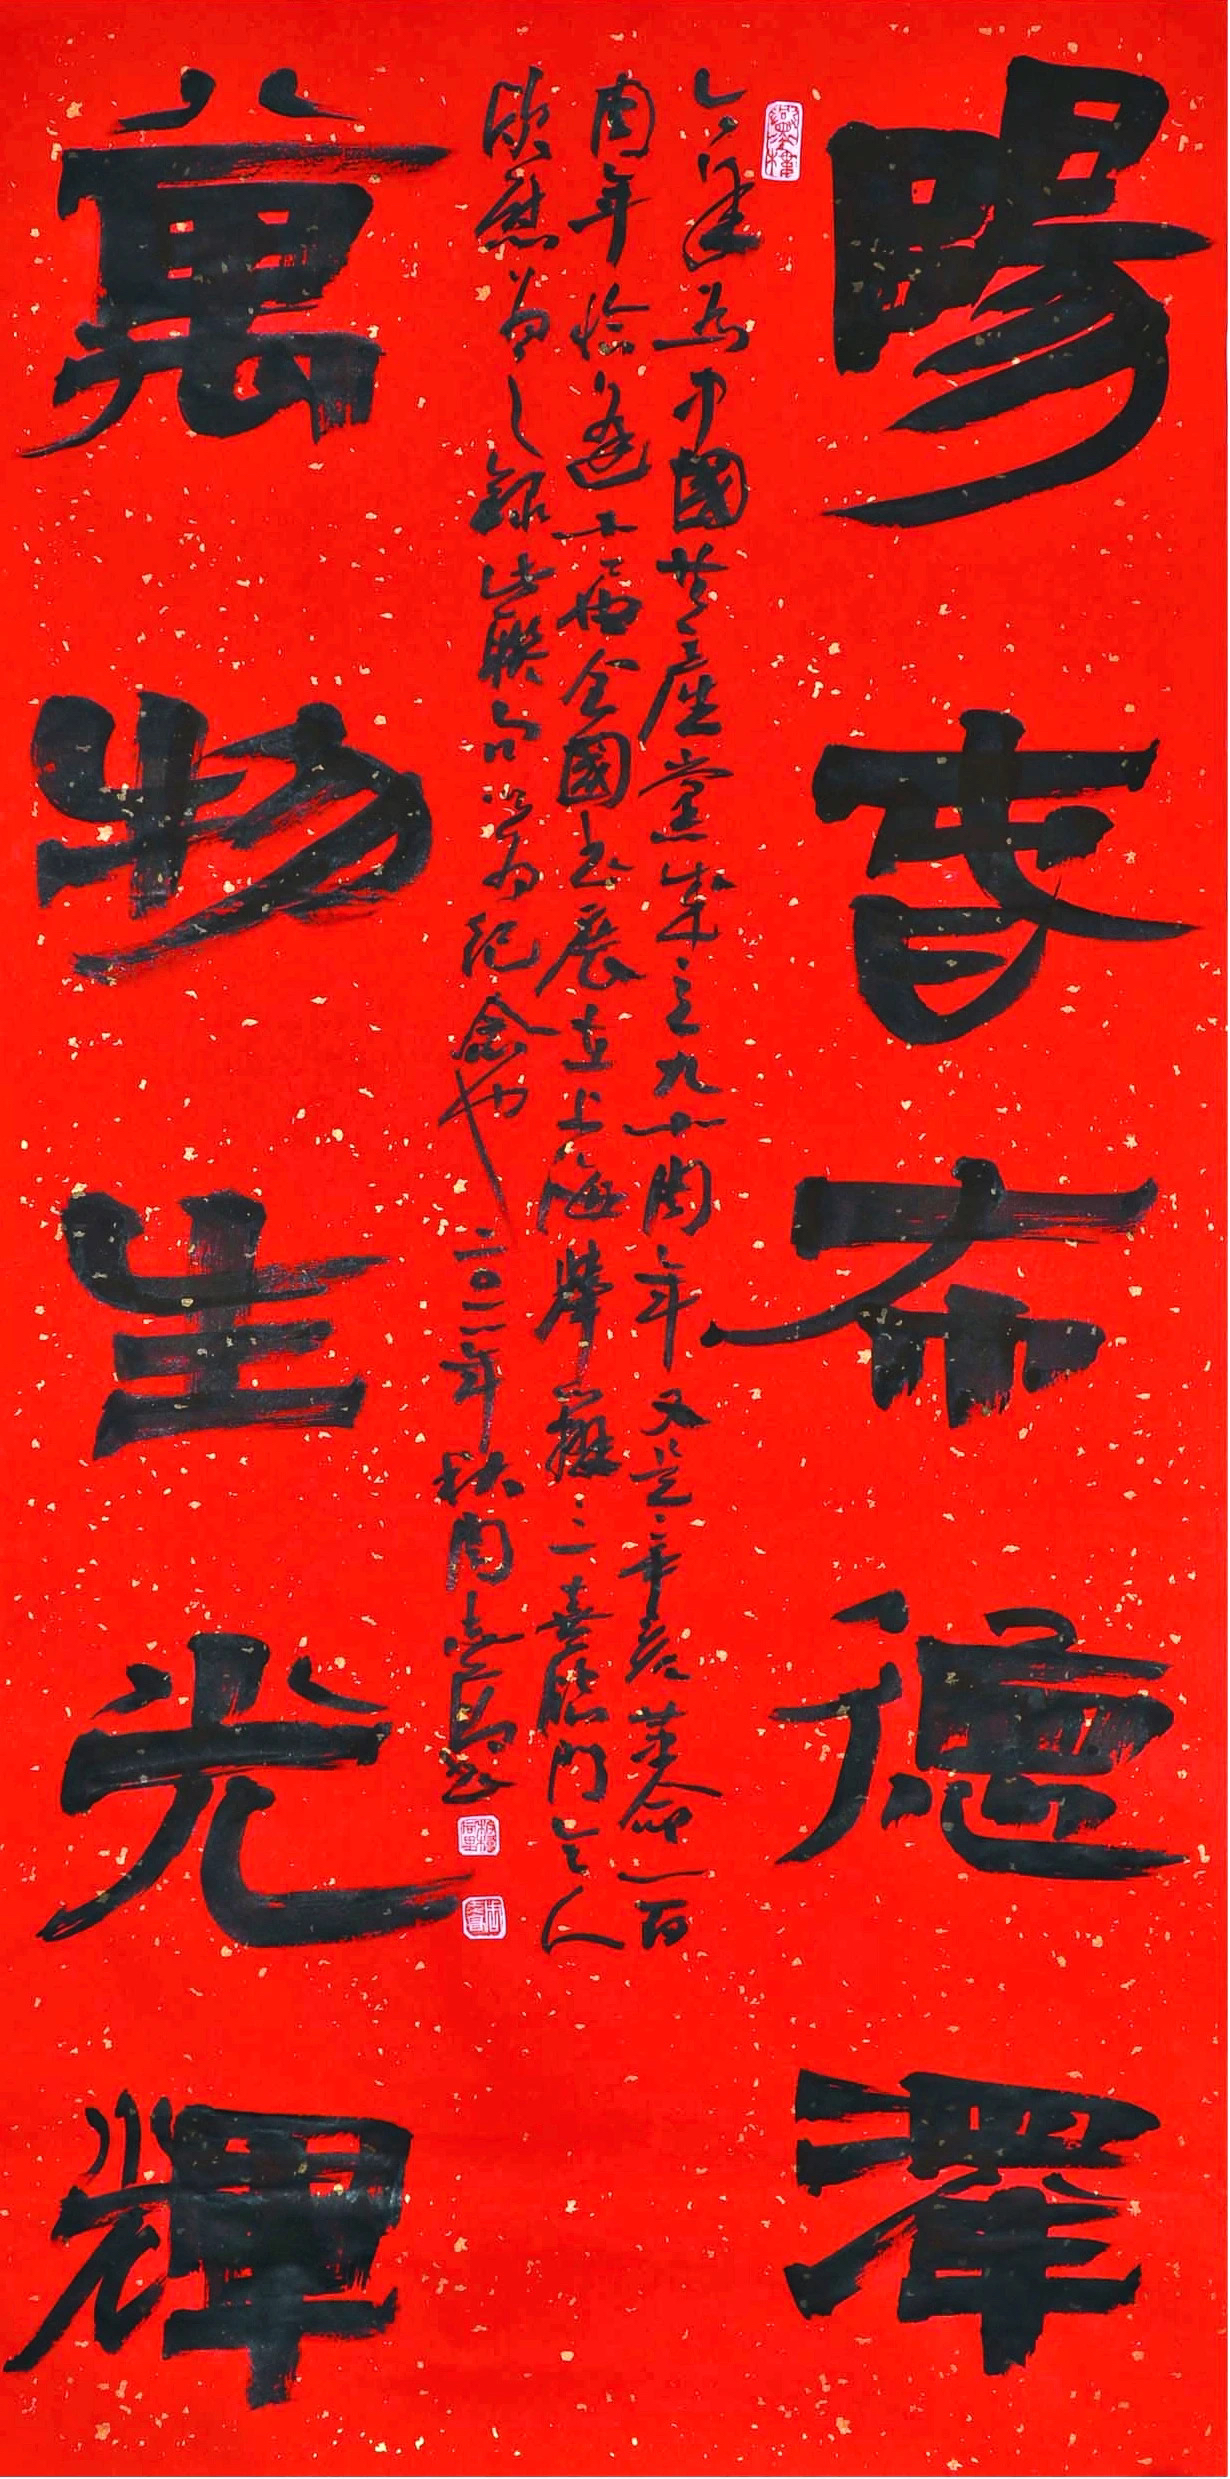 陽春布德澤
萬物生光輝
今年為中國共產黨成立九十周年又是辛亥革命一百
周年恰逢十屆全國書展在上海舉辦三喜臨門令人
欣慰為之錄此聯句以為紀念也二〇一一年秋周志高書